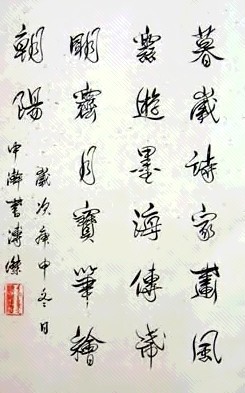 暮歲詩家畫風
遊墨海傳
明月寶筆繪
朝陽
歲次庚申冬日
中澣書溥傑